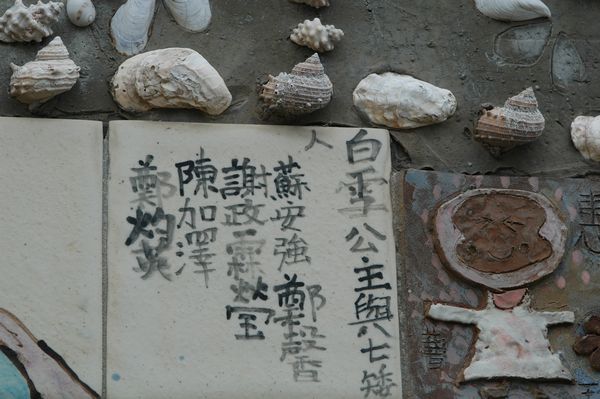 白雪公主與七矮
人
蘇安強 鄭馨
謝政霖 瑩
陳加澤
鄭灼英